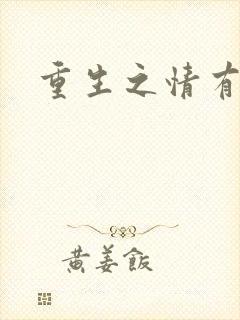 重生之情有
黄姜飯